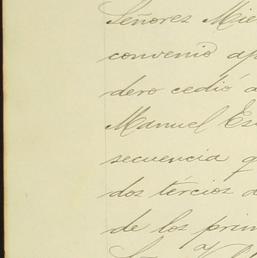 Señores Mie
convenio ap
dero cedió a
Manuel Es
secuencia q
dos tércios d
de los prim